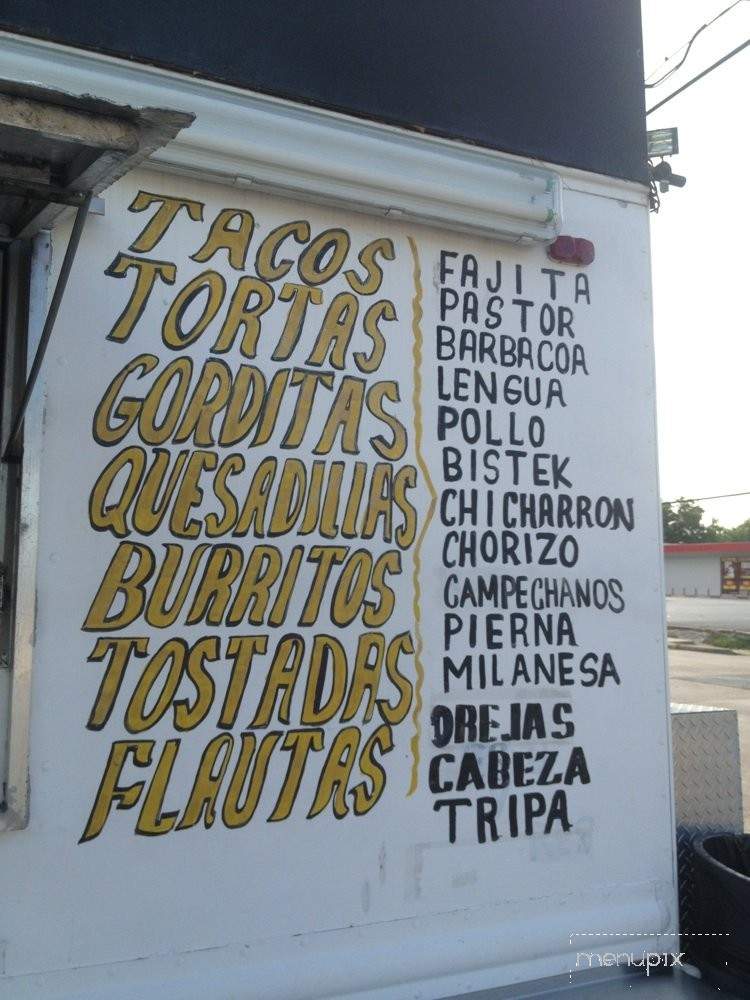 TACOS
TORTAS
GORDITAS
QUESADILLAS
BURRITOS
TOSTADAS
FLAUTAS
FAJITA
PASTOR
BARBACOA
LENGUA
POLLO
BISTEK
CHICHARRON
CHORIZO
CAMPECHANOS
PIERNA
MILANESA
OREJAS
CABEZA
TRIPA
menupix